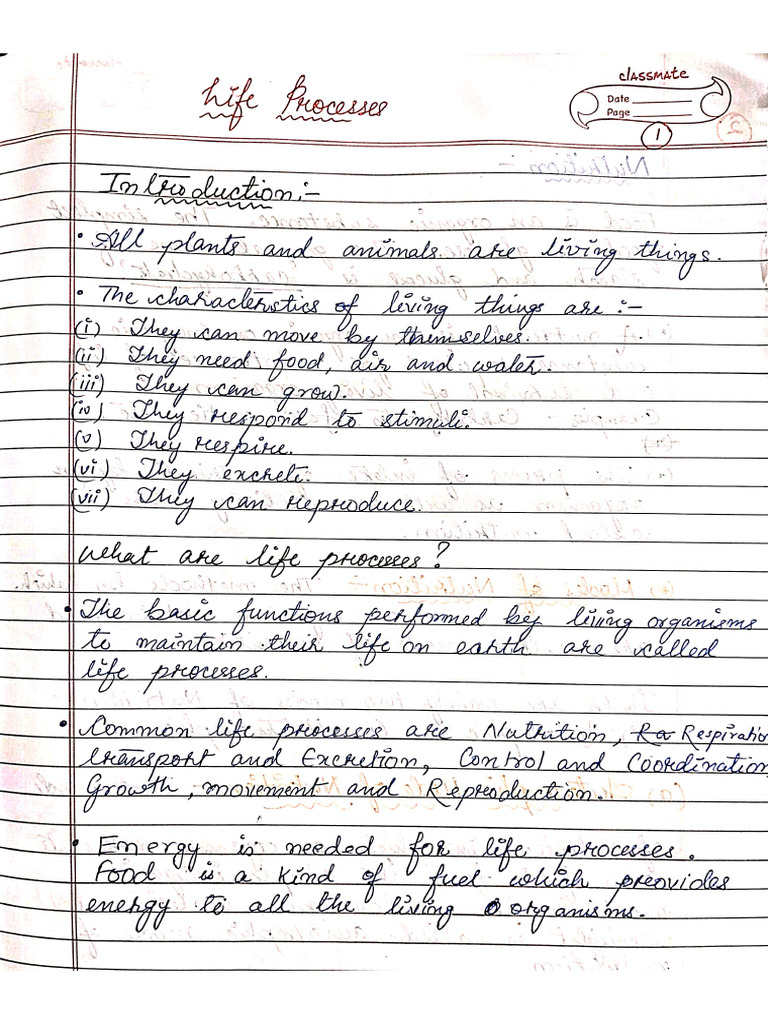 classmate
Date
Page
1
Life Processes
Introduction:-
• All plants and animals are living things.
• The characteristics of living things are :-
(i) They can move by themselves.
(ii) They need food, air and water.
(iii) They can grow.
(iv) They respond to stimuli.
(v) They respire.
(vi) They excrete.
(vii) They can reproduce.
What are life processes?
• The basic functions performed by living organisms
to maintain their life on earth are called
life processes.
• Common life processes are Nutrition, Respiration
transport and Excretion, Control and Coordination
Growth, movement and Reproduction.
• Energy is needed for life processes.
Food is a kind of fuel which provides
energy to all the living organisms.